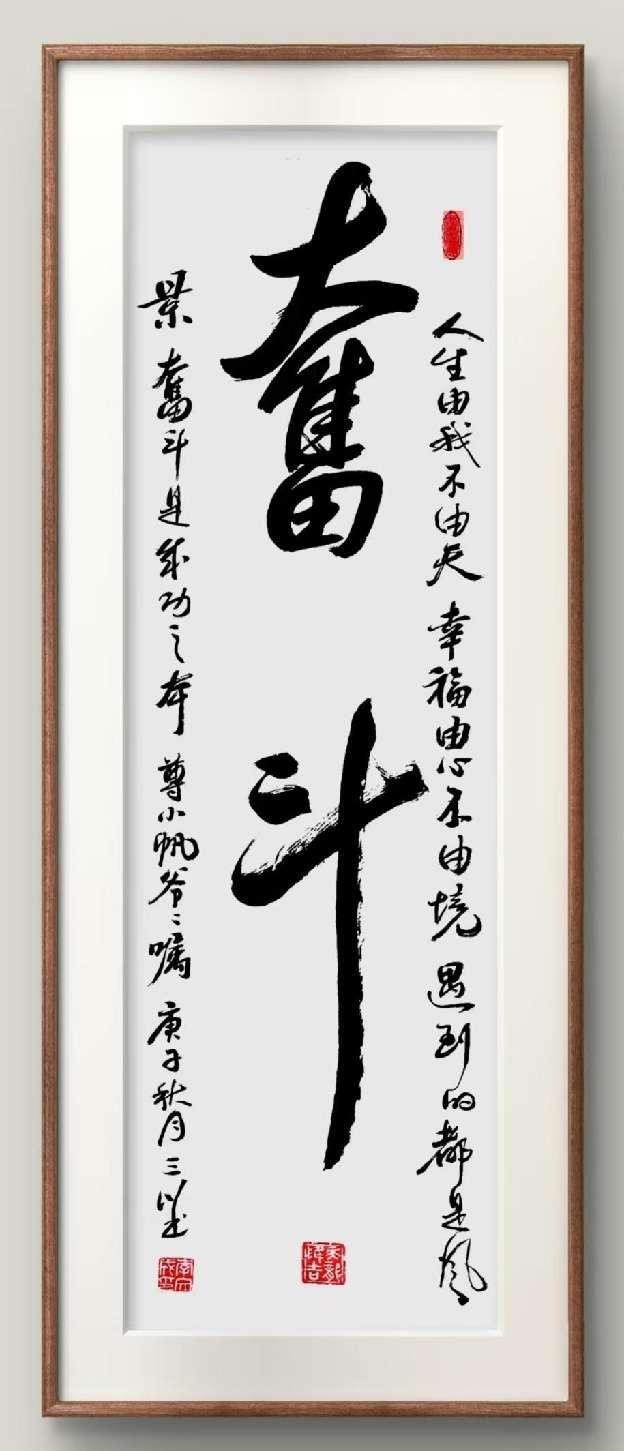 奮斗
人生由我不由天 幸福由心不由境 遇到的都是风
景 奮斗是成功之本 尊小帆爷〻嘱 庚子秋月 三